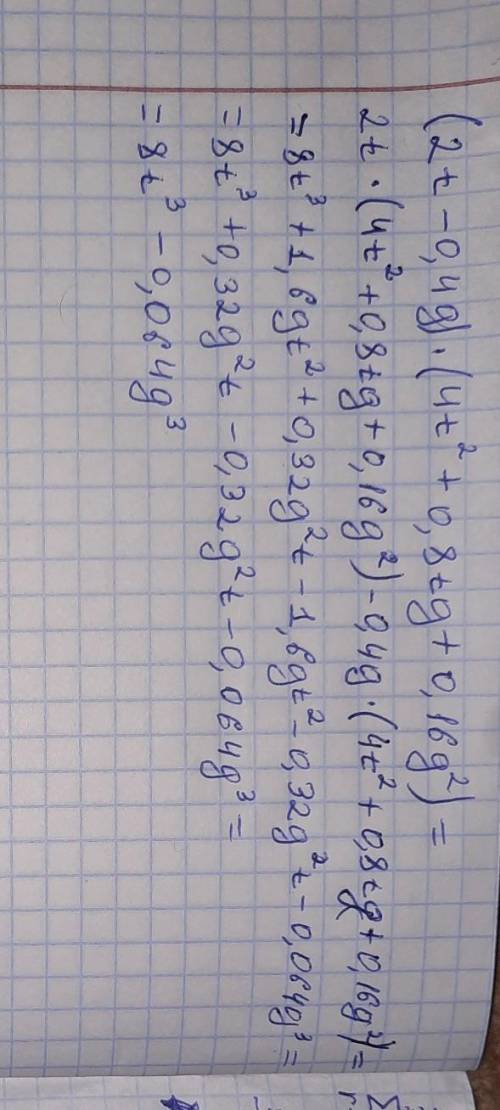 (2t-0,4g)·(4t²+0,8tg+0,16g²)=
2t·(4t²+0,8tg+0,16g²)-0,4g·(4t²+0,8tg+0,16g²)=
=8t³+1,6gt²+0,32g²t-1,6gt²-0,32g²t-0,064g³=
=8t³+0,32g²t-0,32g²t-0,064g³=
=8t³-0,064g³